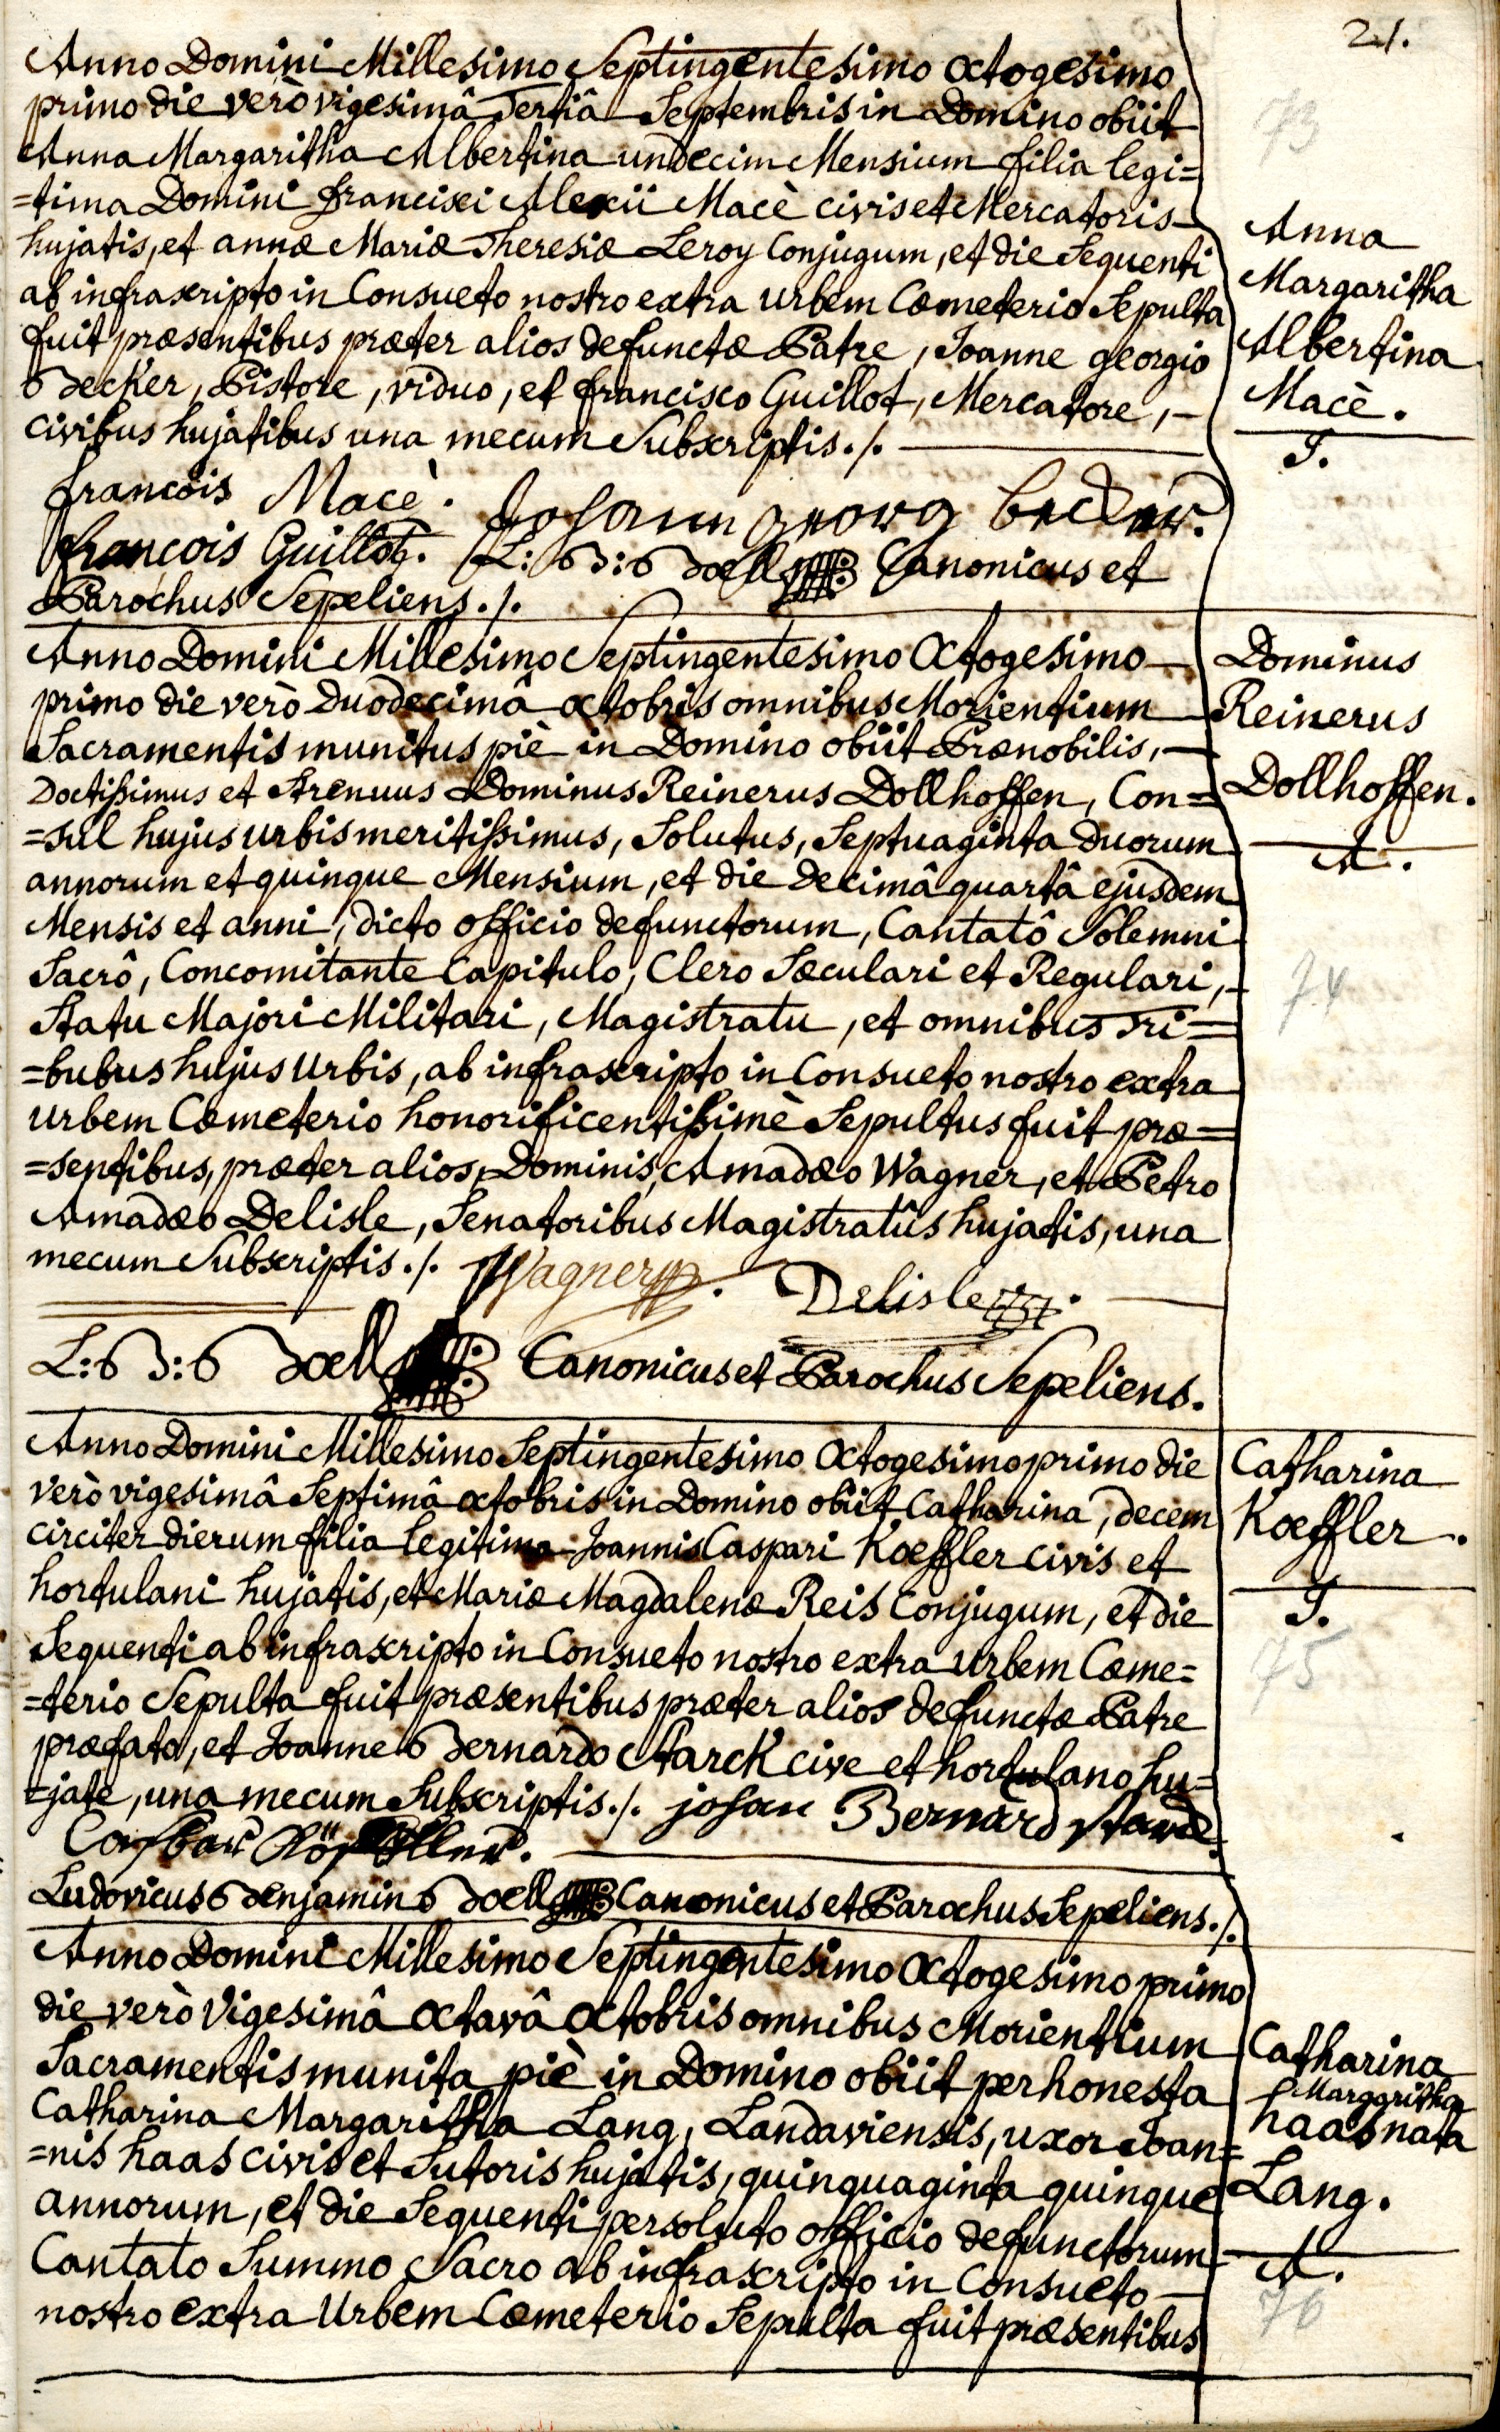 21.
Anno Domini Millesimo Septingentesimo Octogesimo
primo die verò vigesimâ Tertiâ Septembris in Domino obiit
Anna Margaritha Albertina undecim Mensium filia legi=
=tima Domini francisci Alexii Macè civis et Mercatoris
hujatis, et annæ Mariæ Theresiæ Leroy Conjugum, et die Sequenti
ab infrascripto in Consueto nostro extra urbem Cœmeterio Sepulta
fuit præsentibus præter alios defunctæ Patre, Joanne georgio
Becker, Pistore, viduo, et francisco Guillot, Mercatore,
civibus hujatibus una mecum Subscriptis ./.
francois Macè. Johann georg becker.
francois Guillot. L: B: Boell Canonicus et
Parochus Sepeliens ./.
73
Anna
Margaritha
Albertina
Macè.
I.
Anno Domini Millesimo Septingentesimo Octogesimo
primo die verò duodecimâ octobris omnibus Morientium
Sacramentis munitus piè in Domino obiit Prænobilis,
Doctissimus et Strenuus Dominus Reinerus Dollhoffen, Con=
=sul hujus urbis meritissimus, Solutus, Septuaginta duorum
annorum et quinque Mensium, et die decimâ quartâ ejusdem
Mensis et anni, dicto officio defunctorum, Cantatô Solemni
Sacrô, Concomitante Capitulo, Clero Sæculari et Regulari,
Statu Majori Militari, Magistratu, et omnibus Tri=
=bubus hujus Urbis, ab infrascripto in Consueto nostro extra
urbem Cœmeterio honorificentissimè Sepultus fuit præ=
=sentibus, præter alios, Dominis, Amadæo Wagner, et Petro
Amadæo Delisle, Senatoribus Magistratûs hujatis, una
mecum Subscriptis ./. Wagner. Delisle.
L: B: Boell Canonicus et Parochus Sepeliens.
Dominus
Reinerus
Dollhoffen.
A.
74
Anno Domini Millesimo Septingentesimo Octogesimo primo die
verò vigesimâ Septimâ octobris in Domino obiit Catharina, decem
circiter dierum filia legitima Joannis Caspari Koeffler civis et
hortulani hujatis, et Mariæ Magdalenæ Reis Conjugum, et die
Sequenti ab infrascripto in Consueto nostro extra Urbem Cœme=
=terio Sepulta fuit præsentibus præter alios defunctæ Patre
præfato, et Joanne Bernardo Starck cive et hortulano hu=
=jate, una mecum Subscriptis ./. johan Bernard starck
Casbar
Ludovicus Benjamin Boell Canonicus et Parochus Sepeliens ./.
Catharina
Koeffler.
I.
75
Anno Domini Millesimo Septingentesimo Octogesimo primo
die verò Vigesimâ Octavâ Octobris omnibus Morientium
Sacramentis munita piè in Domino obiit perhonesta
Catharina Margaritha Lang, Landaviensis, uxor Joan=
=nis haas civis et Sutoris hujatis, quinquaginta quinque
annorum, et die Sequenti persoluto officio defunctorum
Cantato Summo Sacro ab infrascripto in Consueto
nostro extra Urbem Cœmeterio Sepulta fuit præsentibus
Catharina
Margaritha
haas nata
Lang.
A.
76